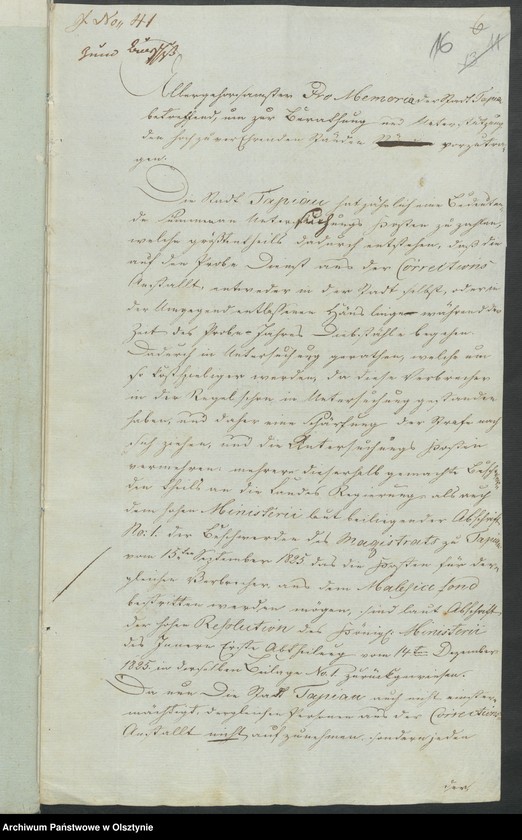 J. No. 41
16 6
zum
Allergehorsamster Pro Memoria der Stadt Tapiau
betreffend, um zur Berathung und Unterstützung
den hochzuverehrenden Ständen vorzutra-
gen.
Die Stadt Tapiau hat jährlich eine bedeuten-
de Summen Untersuchungs Kosten zu zahlen,
welche größtentheils dadurch entstehen, daß die
auf den Probe Dienst aus der Corrections
Anstallt, entweder in der Stadt selbst, oder in
der Umgegend entlassenen Häuslinge während der
Zeit des Probe Jahres Diebstähle begehen.
Dadurch in Untersuchung gerathen, welche um
so kostspieliger werden, da diese Verbrecher
in der Regel schon in Untersuchung gestanden
haben, und daher eine Schärfung der Strafe nach
sich ziehen, und die Untersuchungs Kosten
vermehren. mehrere dieserhalb gemachte Beschwer-
den theils an die Landes Regierung, als auch
dem hohen Ministerii laut beiliegender Abschrift
No: 1. der Beschwerden des Magistrats zu Tapiau
vom 15ten September 1825 das die Kosten für der-
gleichen Verbrecher, aus dem Malefice fond
bestritten werden mögen, sind laut Abschrift
der hohen Resolution des Königl: Ministerii
des Innern Erste Abtheilung vom 14ten Dezember
1825. in derselben Beilage No. 1 zurückgewiesen.
Da nun Die Stadt Tapiau auch nicht
dergleichen Personen aus der Corrections
Anstallt nicht aufzunehmen, sondern jeden
der
Archiwum Państwowe w Olsztynie